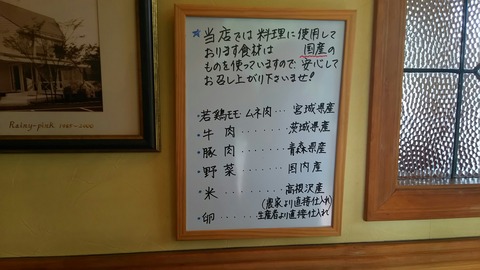 ★当店では料理に使用して
おります食材は 国産の
ものを使っていますので、安心して
お召し上がり下さいませ!
・若鶏モモ ムネ肉・・・宮城県産
・牛肉・・・・・・茨城県産
・豚肉・・・・・・青森県産
・野菜・・・・・・国内産
・米・・・・・・・高根沢産
(農家より直接仕入れ)
・卵・・・・・・生産者より直接仕入れ
Rainy-pink 1987-2000